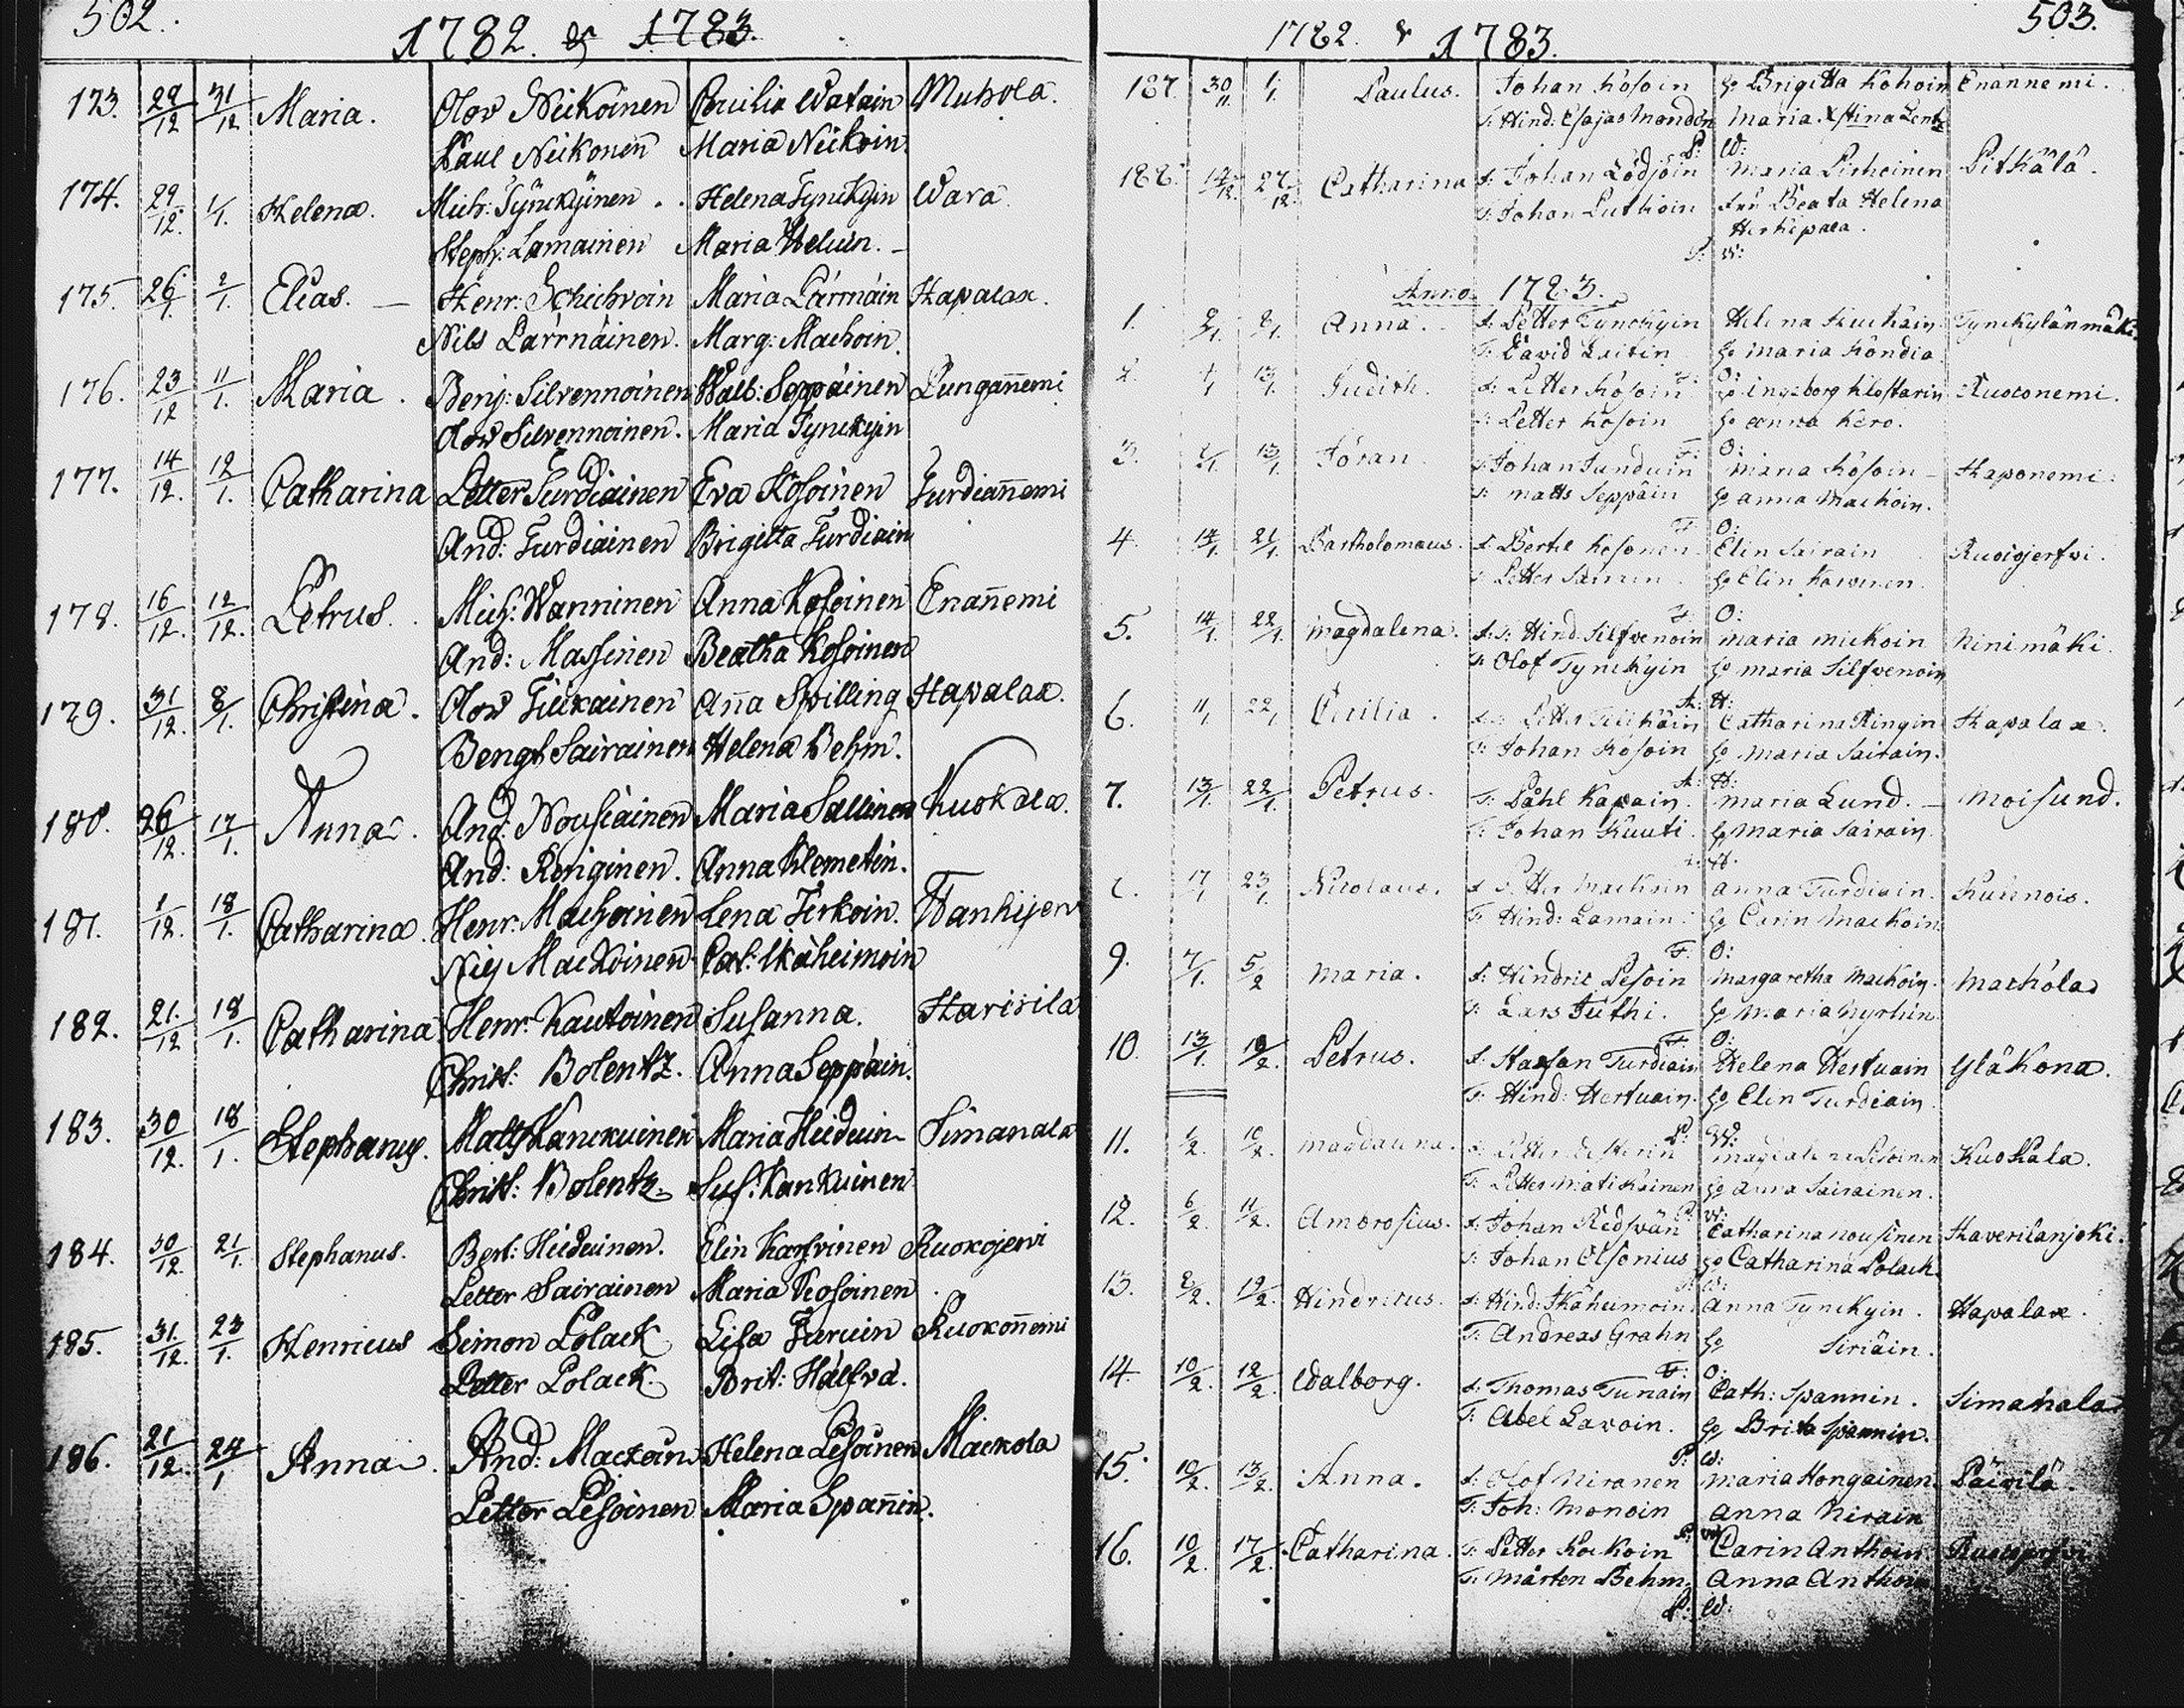 502.
1782. & 1783.
173. 29/12 31/12 Maria. Olov Neikoinen Cecilia Watain Muhola.
Paul Neikonen Maria Neikoin.
174. 29/12. 1/1. Helena. Mich: Tynckyinen .. Helena Tynckyin Wara
Steph: Lamainen Maria Heluin. –
175. 26/1. 2/1. Elias. — Henr: Maria Lärmäin Hapalax.
Nils Lärmäinen. Marg: Machoin.
176. 23/12 11/1. Maria. Benj: Silvennoinen Walb: Seppäinen Pungannemi
Olov Silvennoinen. Maria Tynckyin
177. 14/12. 12/1. Catharina Petter Turdiainen Eva Kosoinen Turdiannemi
And: Turdiainen Brigitta Turdiain
178. 16/12. 12/12. Petrus. Mich: Wanninen Anna Kosoinen Enannemi
And: Massinen Beatha Kosoinen
179. 31/12. 8/1. Christina. Olov Tiickainen Anna Spilling Hapalax.
Bengt Sairainen Helena Behm.
180. 26/12. 17/1. Anna. And: Nousiainen Maria Sallinen Kuokala.
And: Ronginen. Anna Klemetin.
181. 1/12. 18/1. Catharina. Henr: Machoinen Lena Jerkoin. Wanhijerv
Nils Mackoinen Cat: Ikäheimoin
182. 21./12 18/1. Catharina Henr: Kautoinen Susanna. Harisila
Christ: Bolentz. Anna Seppäin.
183. 30/12. 18/1. Stephanus. Matts Kanckuinen Maria Heiduin Simanala
Christ: Bolentz. Sus: Kankuinen
184. 30/12. 21/1. Stephanus. Bert: Heiduinen. Elin Karhvinen Ruokojervi
Petter Sairainen Maria Kosoinen
185. 31./12. 23/1. Henricus Simon Polack Lisa Turuin Ruokonnemi
Petter Polack. Brit: Hälfva.
186. 21/12. 24/1 Anna. And: Mackoin Helena Pesoinen Mackola
Petter Pesoinen Maria Spannin.
503.
1782. & 1783.
187. 30/11. 1/1. Paulus. Johan Kosoin h: Brigitta Kohoin Enannemi.
T: Hind: Esajas Mondon Maria Xstina Lentz
P: W:
188. 14/12. 27/12. Catharina f: Johan Lödjöin Maria Pirheinen Pitkälä.
T: Johan Putkoin Fru Beata Helena
Herkepaea.
P: W:
Anno 1783.
1. 2/1. 8/1. Anna. f: Petter Tynckyin Helena Kuckäin Tynckylänmäki.
T: David Laitin h: Maria Kondia
F: O:
2. 13/1. Judith. f: Petter Kosoin h: Ingeborg Klostarin Ruokonemi.
T: Petter Kosoin h: Anna Kero.
F: O:
3. 13/1. Jöran. f: Johan Sunduin Maria Kosoin – Haponemi.
T: Matts Seppäin h: Anna Machoin.
F: O:
4. 14/1. 21/1. Bartholomaus. f: Bertil Kosonen Elin Sairain Ruoigjerfvi.
T: Petter Sairain. h: Elin Karvinen.
F: O:
5. 14/1. 22/1. Magdalena. f: T: Hind: Silfvenoin Maria Mickoin Ninimäki.
T: Olof Tynckyin h: Maria Silfvenoin
A: H:
6. 11/1 22/1 Cecilia. f: Petter Tiickäin Catharina Ringin Hapalax.
T: Johan Kosoin h: Maria Sairain.
A: H:
7. 13/1. 22/1. Petrus. T: Påhl Kapain. Maria Lund. – Moisund.
T: Johan Kuuti. h: Maria Sairain.
A: H:
8. 17/1 23/1. Nicolaus. f: Petter Mackoin Anna Turdiain. Kuhnois.
T: Hind: Lamain. h: Carin Mackoin.
F: O:
9. 7/1. 5/2 Maria. f: Hindric Pesoin Margaretha Mackoin. Mackola
T: Lars Juthi. h: Maria Nyrhin.
F: O:
10. 13/1. 10/2. Petrus. f: Staffan Turdiain Helena Hertuain Yläkona.
T: Hind: Hertuain. h: Elin Turdiain.
P: W:
11. 1/2. 10/2. Magdalena. f: Petter Magdalena Pesoinen Kuokala.
T: Petter Matikainen h: Anna Sairainen.
P: W:
12. 6/2. 11/2. Ambrosius. f: Johan Redsvän Catharina Nousinen Haverilanjoki.
T: Johan Elsonius h: Catharina Polack.
P: W:
13. 8/2. 12/2. Hindricus. f: Hind: Ikäheimoin Anna Tynckyin. Hapalax.
T: Andreas Grahn h: Siriäin.
F: O:
14. 10/2. 12/2. Walborg. f: Thomas Tunain Cath: Spannin. Simanala
T: Abel Lavoin. h: Brita Spannin.
P: W:
15. 10/2. 13/2. Anna. f: Olof Niranen Maria Hongainen. Päivilä.
T: Joh: Monoin Anna Nirain
P: W:
16. 10/2. 17/2. Catharina. f: Petter Kockoin Carin Anthoin
T: Mårten Behm. Anna Anthoin
P: W: